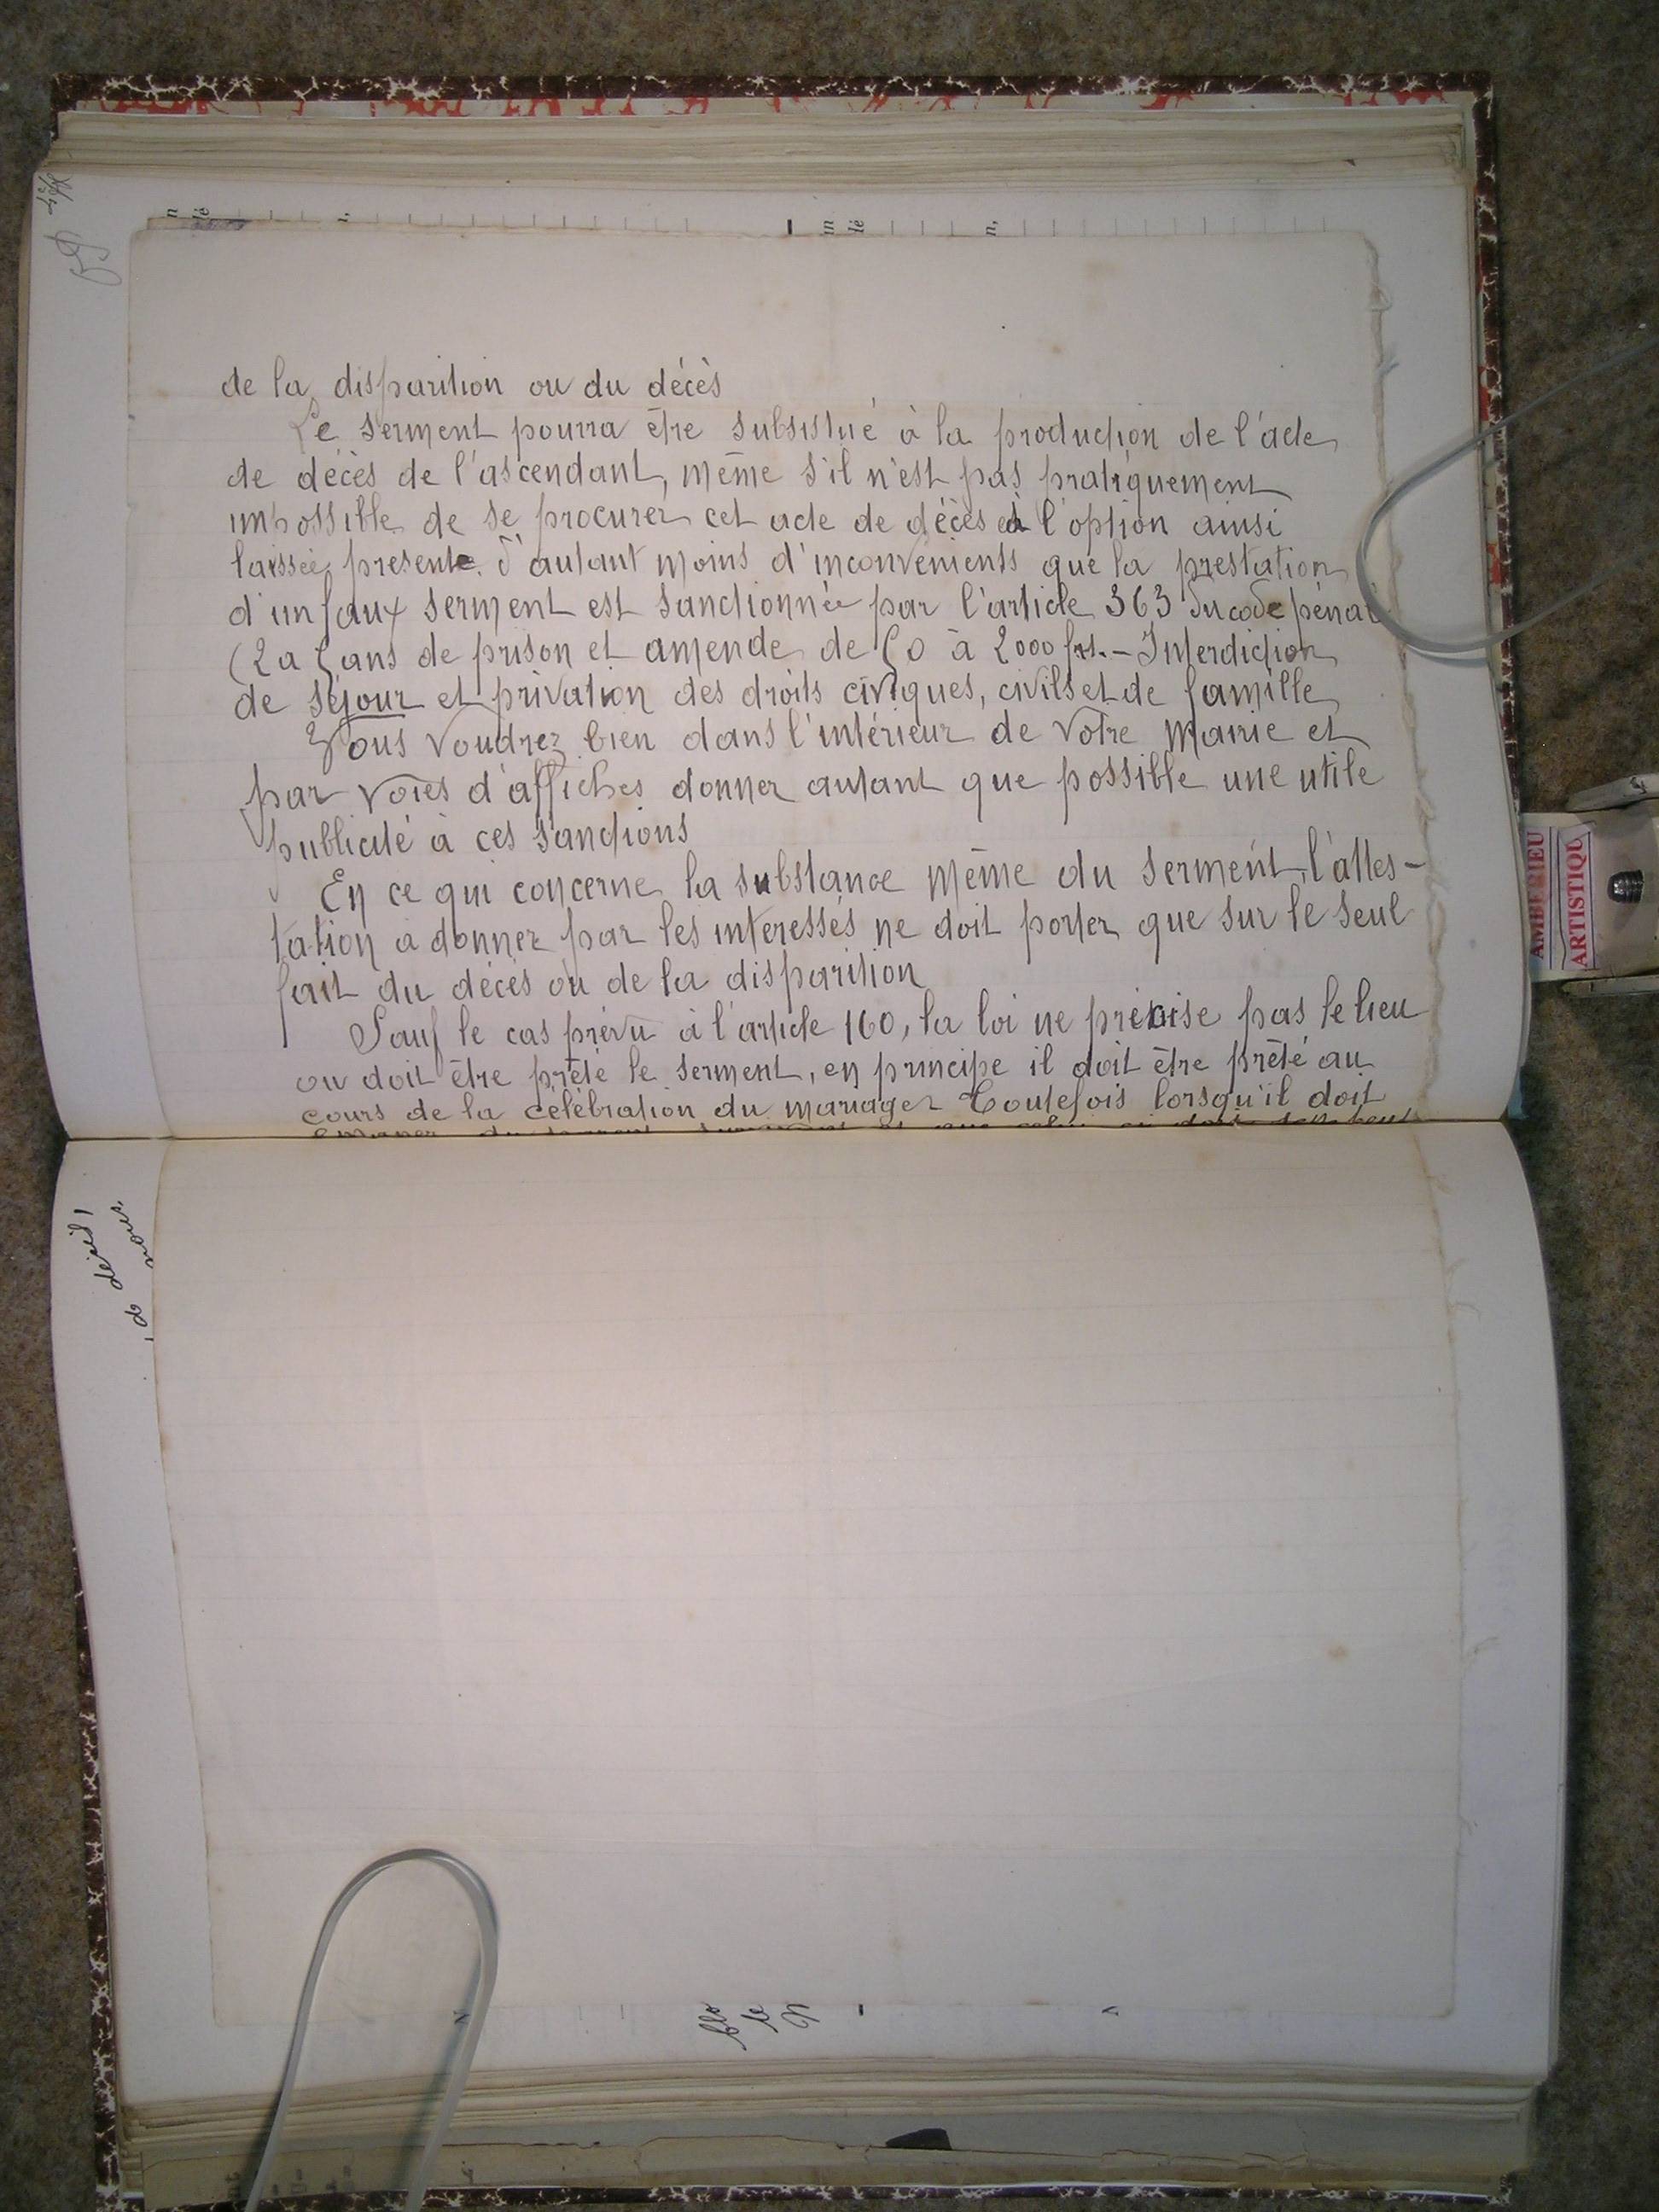 de la disparition ou du décès
Le serment pourra être substitué à la production de l'acte
de décès de l'ascendant, même s'il n'est pas pratiquement
impossible de se procurer cet acte de décès et l'option ainsi
laissée présente d'autant moins d'inconvénients que la prestation
d'un faux serment est sanctionnée par l'article 363 du code pénal
(2 a 5 ans de prison et amende de 50 à 2000 frs. - Interdiction
de séjour et privation des droits civiques, civils et de famille
Vous voudrez bien dans l'intérieur de votre Mairie et
par voies d'affiches donner autant que possible une utile
publicité à ces sanctions
En ce qui concerne la substance même du serment, l'attes-
tation a donner par les interessés ne doit porter que sur le seul
fait du décès ou de la disparition
Sauf le cas prévu à l'article 160, la loi ne précise pas le lieu
ou doit être prêté le serment, en principe il doit être prêté au
cours de la célébration du mariage Toutefois lorsqu'il doit
décéd,
nous
AMBERIEU
ARTISTIQU